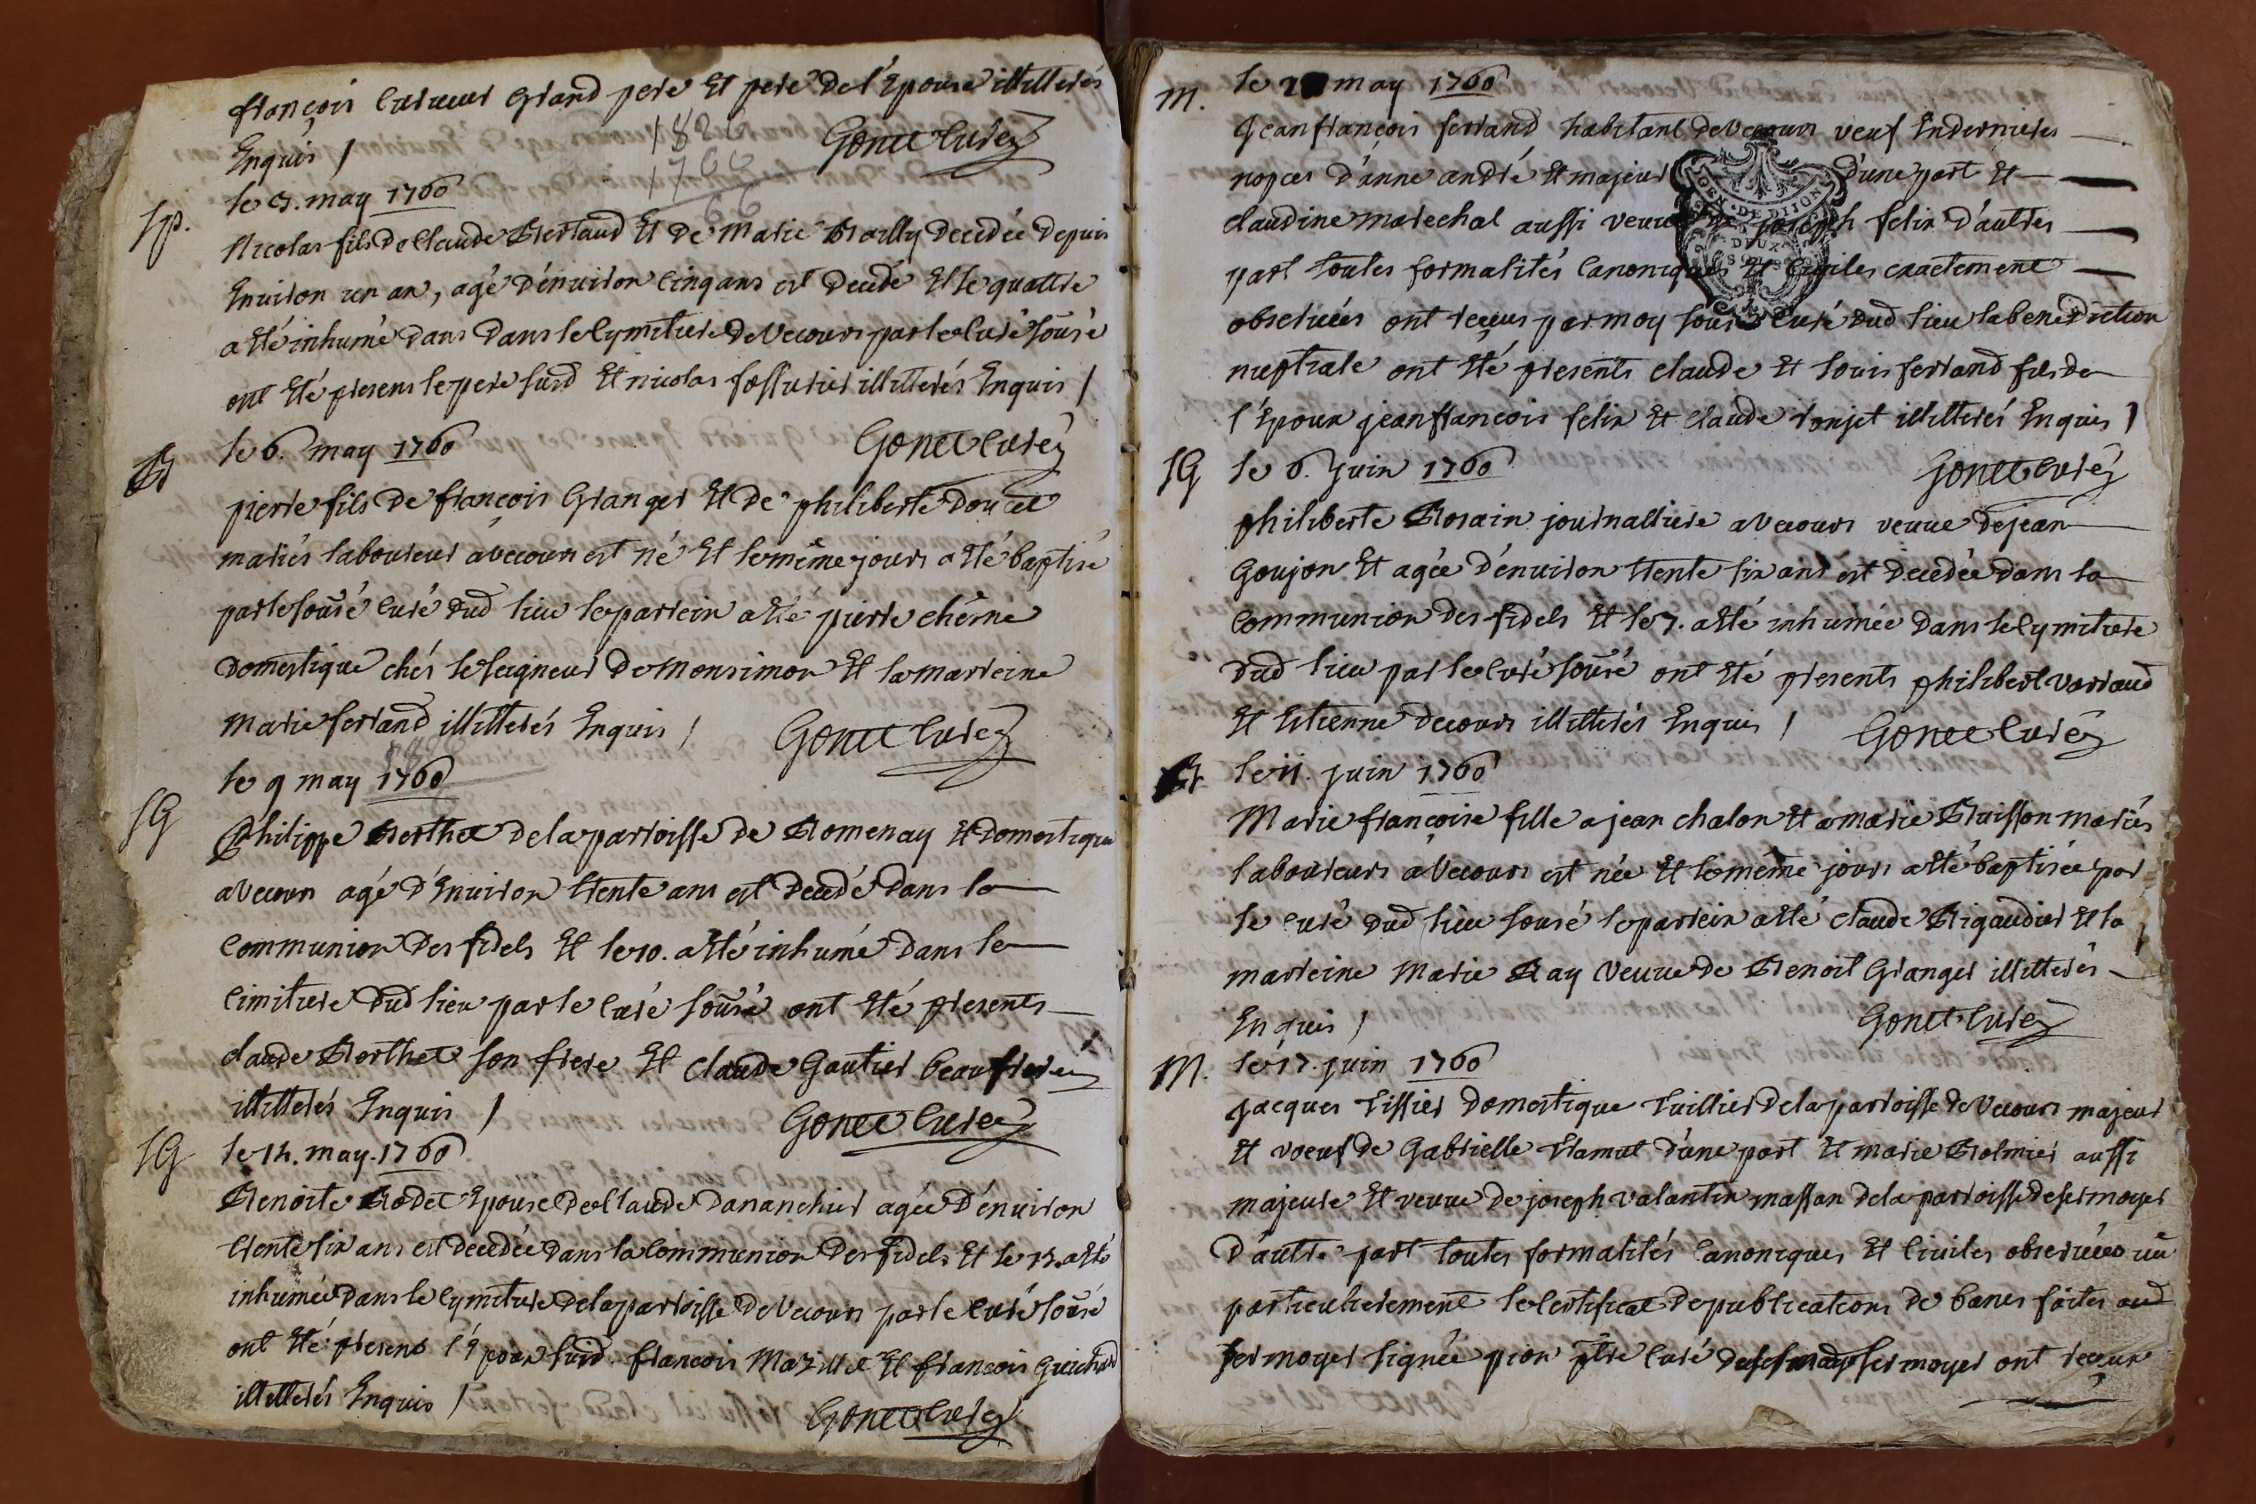 françois Cureur Grand pere Et pere de l'Epouse illitterés
Enquis /
Gonet Curé
1826
1760
66
le 3. may 1760
Sp.
Nicolas fils de Claude Bertaud Et de Marie Bailly decedée depuis
Environ un an, agé d'énviron Cinq ans est decedé Et le quattre
a Eté inhumé dans dans le Cymitiere de Vecours par le Curé sousré
ont Eté presens le pere susd Et nicolas fossurier illitterés Enquis /
Gonet Curé
B
le 6. may 1760
pierre fils de françois Granger Et de philiberte doucet
mariés laboureur a vecours est né Et le même jours a Eté baptisé
par le sousré Curé dud lieu le parrein a Eté pierre chêne
domestique chés le seigneur de Monsimon Et la marreine
Marie ferrand illitterés Enquis /
Gonet Curé
SG
le 9 may 1760
Philippe Berthet de la parroisse de Romenay Et domestique
a Vecours agé d'Environ trente ans est decedé dans la
Communion des fidels Et le 10. a Eté inhumé dans le
Cimitiere dud lieu par le Curé sousré ont Eté presents
claude Berthet son frere Et Claude Gautier beaufrere
illitterés Enquis /
Gonet Curé
SG
le 14. may. 1760
Benoite Rodet Epouse de Claude dananchier agée d'énviron
trente six ans est decedée dans la Communion des fidels Et le 15. a Eté
inhumée dans le Cymitiere de la parroisse de Vecours par le Curé sousré
ont Eté presens l'époux susd. françois Mazillet Et françois Guichard
illitterés Enquis /
Gonet Curé
M.
le may 1760
Jean françois ferrand habitant de Vecours veuf En dernieres
nopces d'anne andré Et majeur d'une part Et
GEN. DE DIJON
DEUX
SOLS
claudine marechal aussi veuve de joseph felix d'autres
part toutes formalités Canoniques Et Civiles exactement
observées ont reçus par moy sousré Curé dud lieu la benediction
nuptiale ont Eté presents claude Et louis ferrand fils de
l'Epoux jean françois felix Et Claude ronjet illitterés Enquis /
Gonet Curé
SG
le 6. Juin 1760
philiberte Rosain journalliere a Vecours veuve de jean
Goujon Et agée d'énviron trente six ans est decedée dans la
Communion des fidels Et le 7. a Eté inhumée dans le Cymitiere
dud lieu par le Curé sousré ont Eté presents philibert varraud
Et Etienne decours illitterés Enquis /
Gonet Curé
B
le 11. juin 1760
Marie françoise fille a jean chalon Et a marie Buisson mariés
laboureurs a Vecours est née Et le même jours a Eté baptisée par
le Curé dud lieu sousré le parrein a Eté claude Rigaudier Et la
marreine Marie Ray Veuve de Benoit Granger illitterés
Enquis /
Gonet Curé
M.
le 17. juin 1760
Jacques tissier domestique tuillier de la parroisse de Vecours majeur
Et voeuf de Gabrielle tramut d'une part Et marie Bolmier aussi
majeure Et veuve de joseph valantin massan de la parroisse de sermoyer
d'autre part toutes formalités Canoniques Et Civiles observées vû
particulierement le Certificat de publications de bancs faites aud
sermoyer signée pion ptre Curé de sermoyer ont reçux